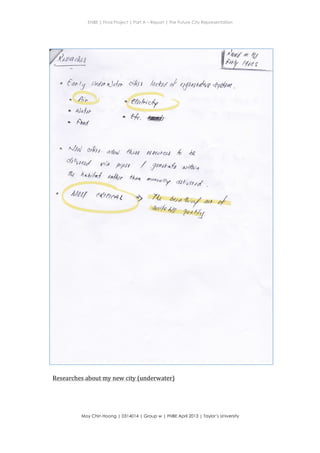 ENBE | Final Project | Part A – Report | The Future City Representation
Researches
Early Ideas
• Early underwater cities lacked of regenerative system.
• Air
• Electricity
• Water
• Etc.
• Food
• New cities allow these resources to be
delivered via pipes / generate within
the habitat rather than manually delivered.
• MOST CRITICAL → The breathing air of
suitable quality
Researches about my new city (underwater)
Moy Chin Hoong | 0314014 | Group w | FNBE April 2013 | Taylor's University